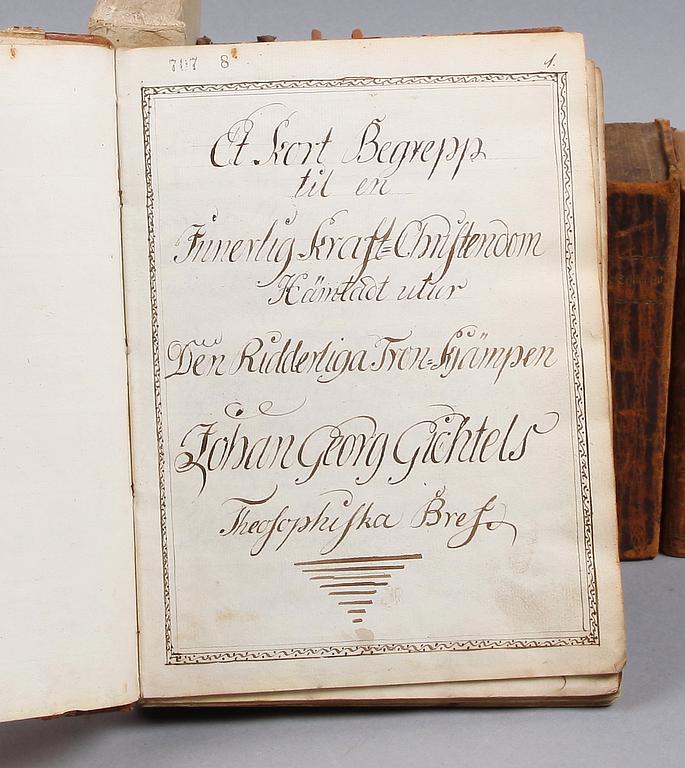 707 8 1.
Et kort Begrepp
til en
Innerlig Kraft=Christendom
Hämtadt utur
Den Ridderliga Tron=Kjämpen
Johan Georg Gichtels
Theosophiska Bref.